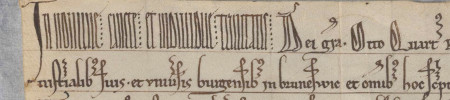 In nomine : sancte : et indiuidue : trinitatis : Dei gra. Otto Quart
suis. et vniusis burgensib in brunswic et omib hoc scptu